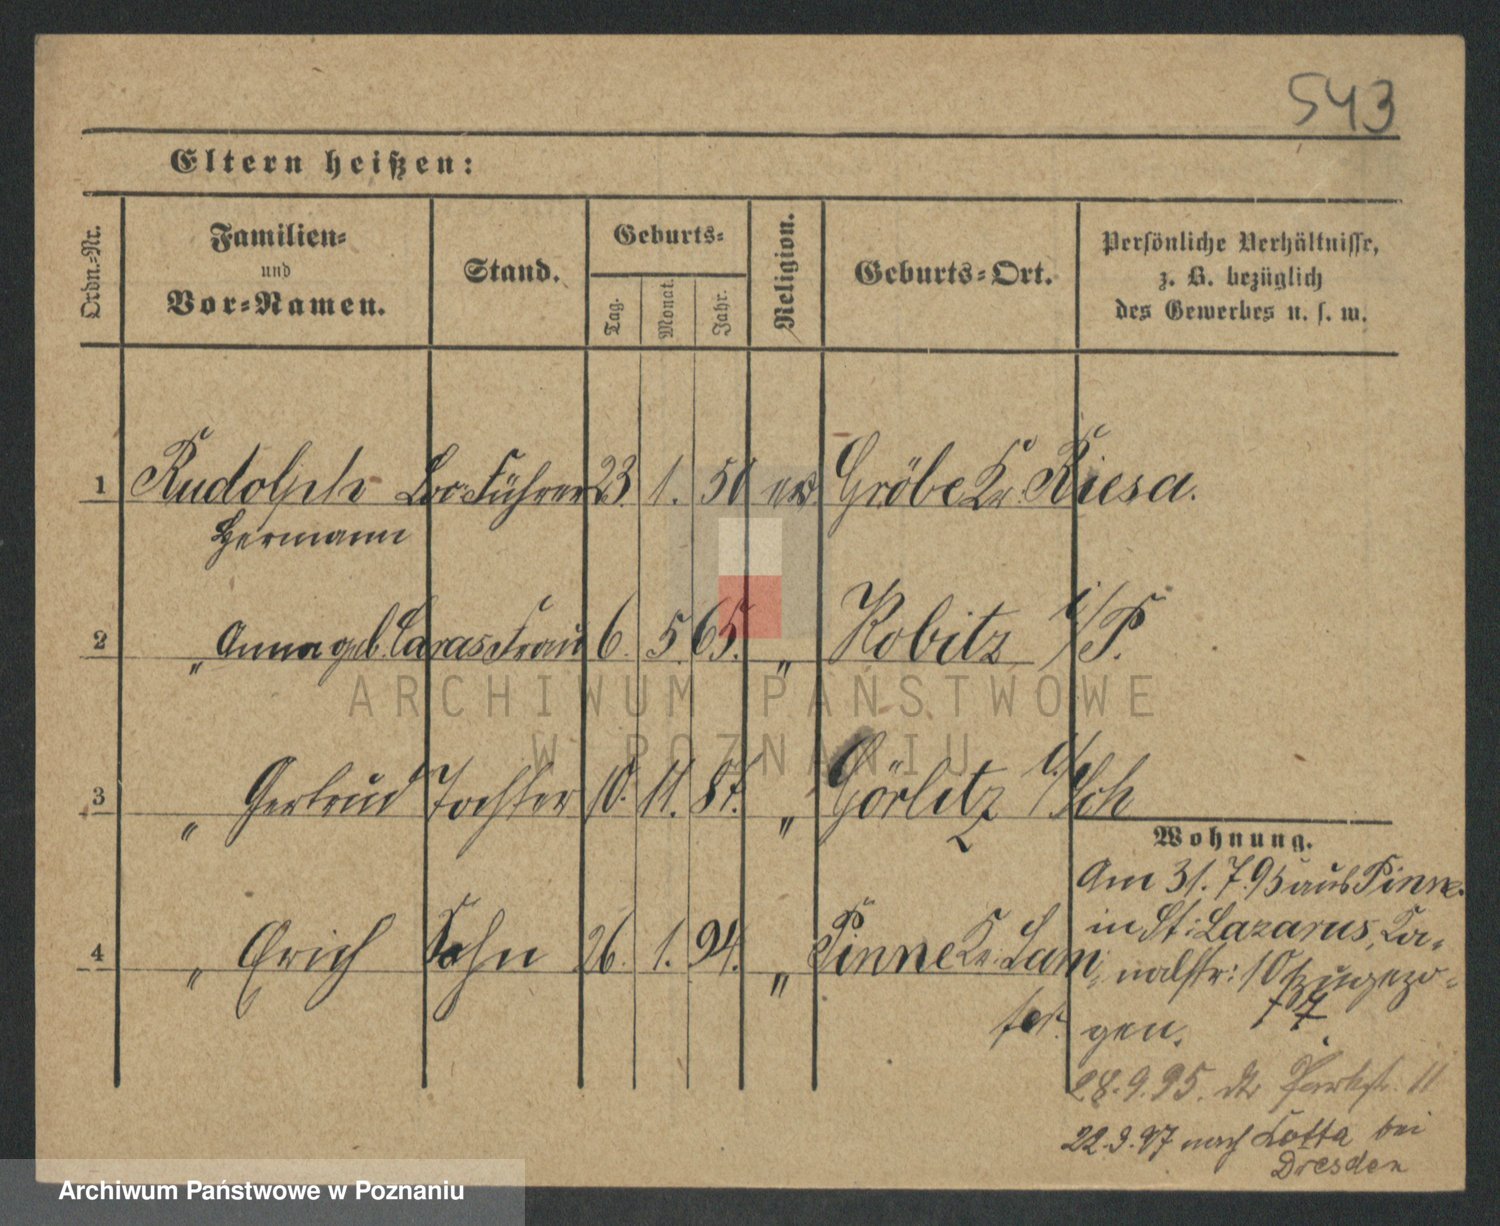 543
Eltern heißen:
Ordn.-Nr.
Familien- und Vor-Namen.
Stand.
Geburts-
Tag.
Monat.
Jahr.
Religion.
Geburts-Ort.
Persönliche Verhältnisse,
z. B. bezüglich
des Gewerbes u. s. w.
1 Rudolph Loc. Führer 23. 1. 50 ev. Gröbe Kr. Riesa.
Hermann
2 „ Anna geb. Laras Frau 6. 5. 65. „ Kobitz i/P.
3 „ Gertrud Tochter 10. 11. 87. „ Görlitz i/Sch
4 „ Erich Sohn 26. 1. 94. „ Pinne Kr. Sam
ter.
Wohnung.
Am 31. 7. 95 aus Pinne
in St: Lazarus, Ka-
nalstr: 10 zugezo-
gen.
28. 9. 95. Parkstr. 11
22. 9. 97 nach Cotta bei
Dresden
ARCHIWUM PAŃSTWOWE
W POZNANIU
Archiwum Państwowe w Poznaniu